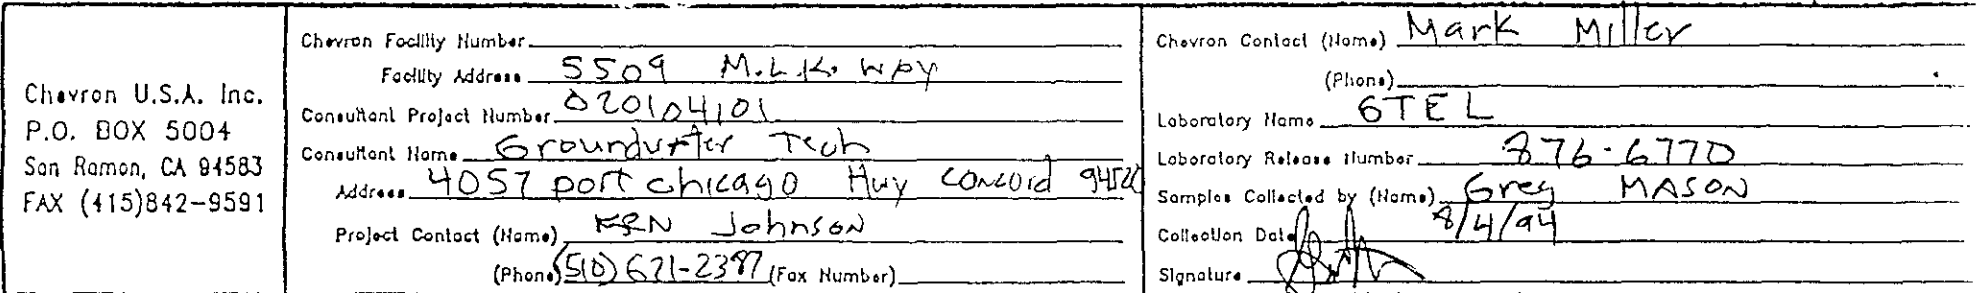 Chevron U.S.A. Inc.
P.O. BOX 5004
San Ramon, CA 94583
FAX (415)842-9591
Chevron Facility Number
Facility Address 5509 M.L.K. WAY
Consultant Project Number 020104101
Consultant Name Groundwater Tech
Address 4057 port chicago Hwy Concord
Project Contact (Name) KEN Johnson
(Phone) (510) 671-2387 (Fax Number)
Chevron Contact (Name) Mark Miller
(Phone)
Laboratory Name GTEL
Laboratory Release Number 876-6770
Samples Collected by (Name) Greg MASON
Collection Date 8/4/94
Signature